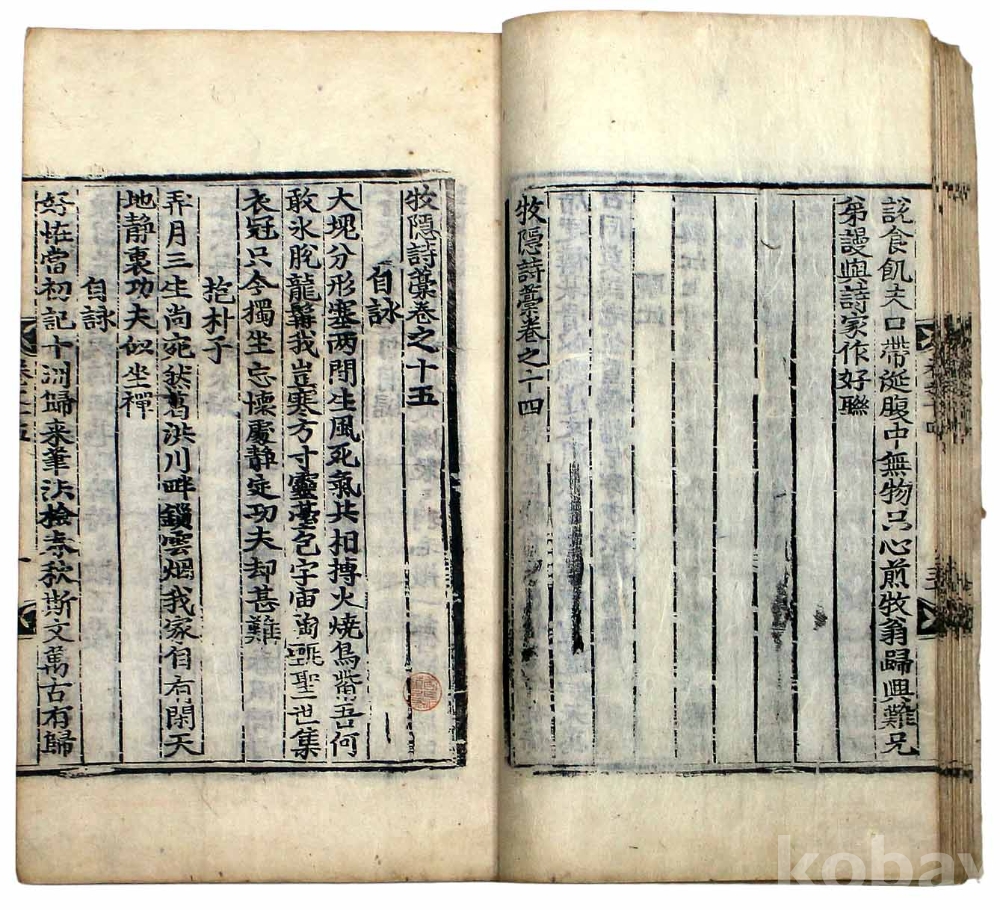 說食飢夫口帶涎腹中無物只心煎牧翁歸興難兄
第謾與詩家作好聯
牧隱詩藁卷之十四
牧隱詩藁卷之十五
自詠
大塊分形塞兩間生風死氣共相摶火燒鳥觜吾何
敢氷脫龍鬚我豈寒方寸靈臺包宇宙陶甄聖世集
衣冠只今獨坐忘懷處静定功夫却甚難
抱朴子
弄月三生尚宛然葛洪川畔鎖雲烟我家自有閑天
地静裏功夫似坐禪
自詠
好恠當初記十洲歸来筆法檢春秋斯文萬古有歸
kobay